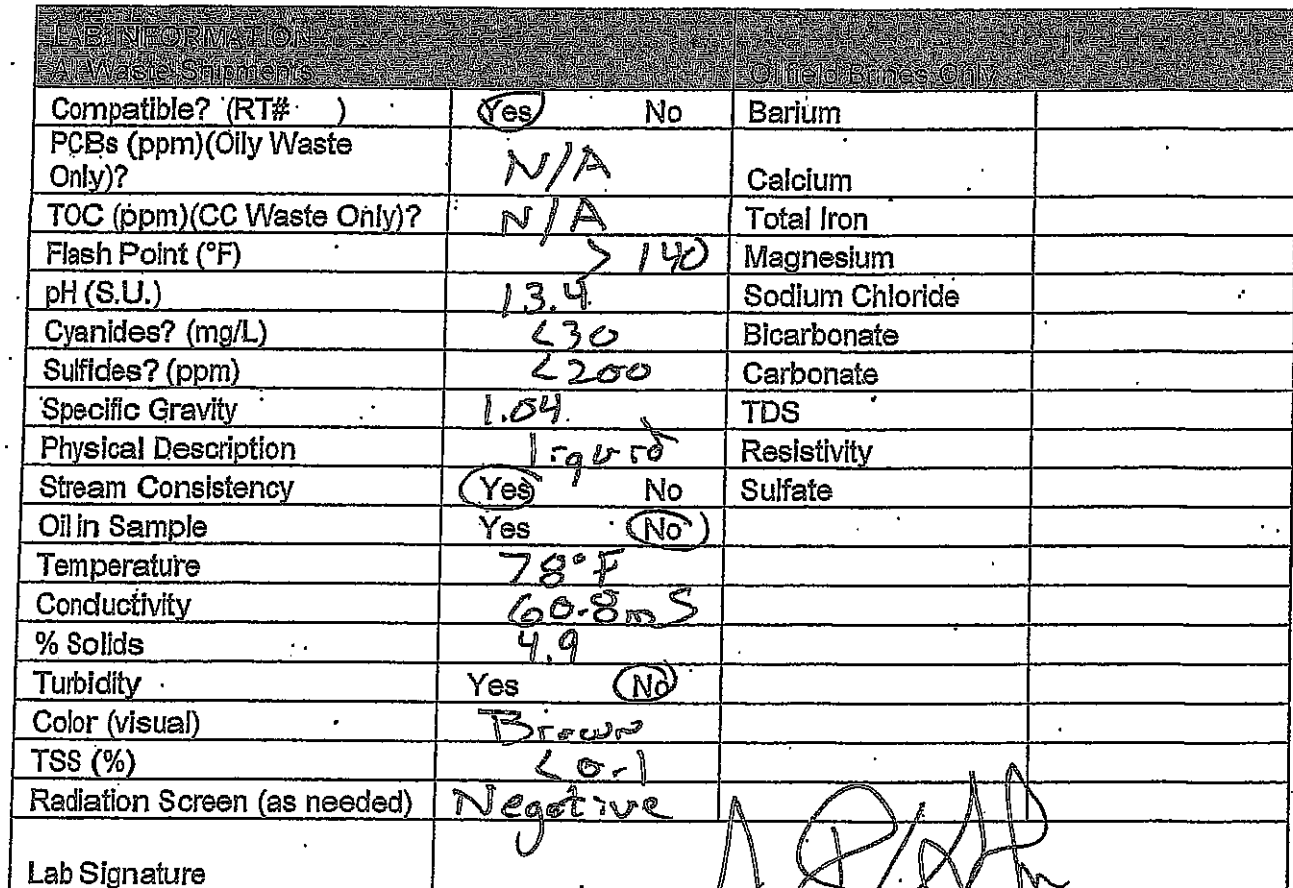 LAB INFORMATION
All Waste Shipments Oilfield Brines Only
Compatible? (RT# ) Yes No Barium
PCBs (ppm)(Oily Waste
Only)? N/A Calcium
TOC (ppm)(CC Waste Only)? N/A Total Iron
Flash Point (°F) > 140 Magnesium
pH (S.U.) 13.4 Sodium Chloride
Cyanides? (mg/L) <30 Bicarbonate
Sulfides? (ppm) <200 Carbonate
Specific Gravity 1.04 TDS
Physical Description liquid Resistivity
Stream Consistency Yes No Sulfate
Oil in Sample Yes No
Temperature 78°F
Conductivity 60.8mS
% Solids 4.9
Turbidity Yes No
Color (visual) Brown
TSS (%) <0.1
Radiation Screen (as needed) Negative
Lab Signature